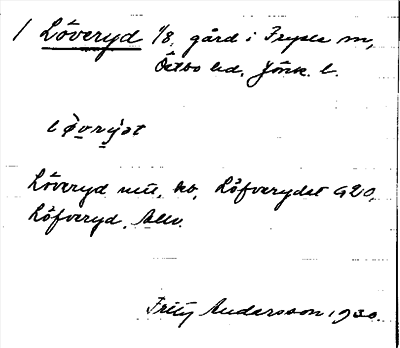 / Löveryd 1/8, gård i Fryele sn,
Östbo hd, Jönk. l.
Löveryd
Löfverydet G20,
Löfveryd
Fritz Andersson 1930.